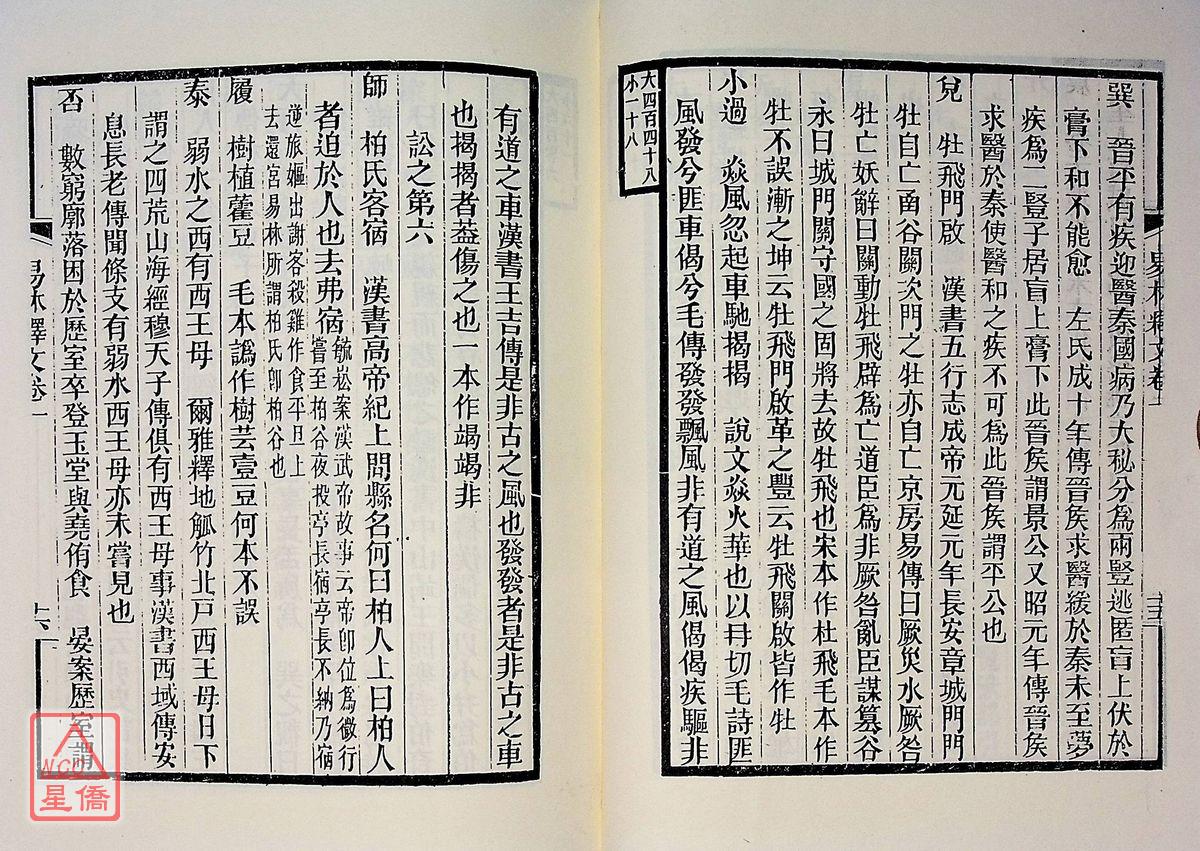 巽　晉平有疾迎醫秦國病乃大秘分爲兩豎逃匿肓上伏於
膏下和不能愈　左氏成十年傳晉侯求醫緩於秦未至夢
疾爲二豎子居肓上膏下此晉侯謂景公又昭元年傳晉侯
求醫於秦使醫和之疾不可爲此晉侯謂平公也
兌　牡飛門啟　漢書五行志成帝元延元年長安章城門門
牡自亡函谷關次門之牡亦自亡京房易傳曰厥災水厥咎
牡亡妖辭曰關動牡飛辟爲亡道臣爲非厥咎亂臣謀篡谷
永曰城門關守國之固將去故牡飛也宋本作杜飛毛本作
牡不誤漸之坤云牡飛門啟革之豐云牡飛關啟皆作牡
小過　焱風忽起車馳揭揭　說文焱火華也以冄切毛詩匪
風發兮匪車偈兮毛傳發發飄風非有道之風偈偈疾驅非
大四百四十八
小一十八
易林釋文卷一
十五
有道之車漢書王吉傳是非古之風也發發者是非古之車
也揭揭者葢傷之也一本作竭竭非
訟之第六
師　柏氏客宿　漢書高帝紀上問縣名何曰柏人上曰柏人
者迫於人也去弗宿毓崧案漢武帝故事云帝卽位爲微行
嘗至柏谷夜投亭長宿亭長不納乃宿
逆旅嫗出謝客殺雞作食平旦上
去還宮易林所謂柏氏卽柏谷也
履　樹植藿豆　毛本譌作樹芸壹豆何本不誤
泰　弱水之西有西王母　爾雅釋地觚竹北戸西王母日下
謂之四荒山海經穆天子傳俱有西王母事漢書西域傳安
息長老傳聞條支有弱水西王母亦未嘗見也
否　數窮廓落困於歷室卒登玉堂與堯侑食　晏案歷室謂
易林釋文卷一
十六
NCC
星僑